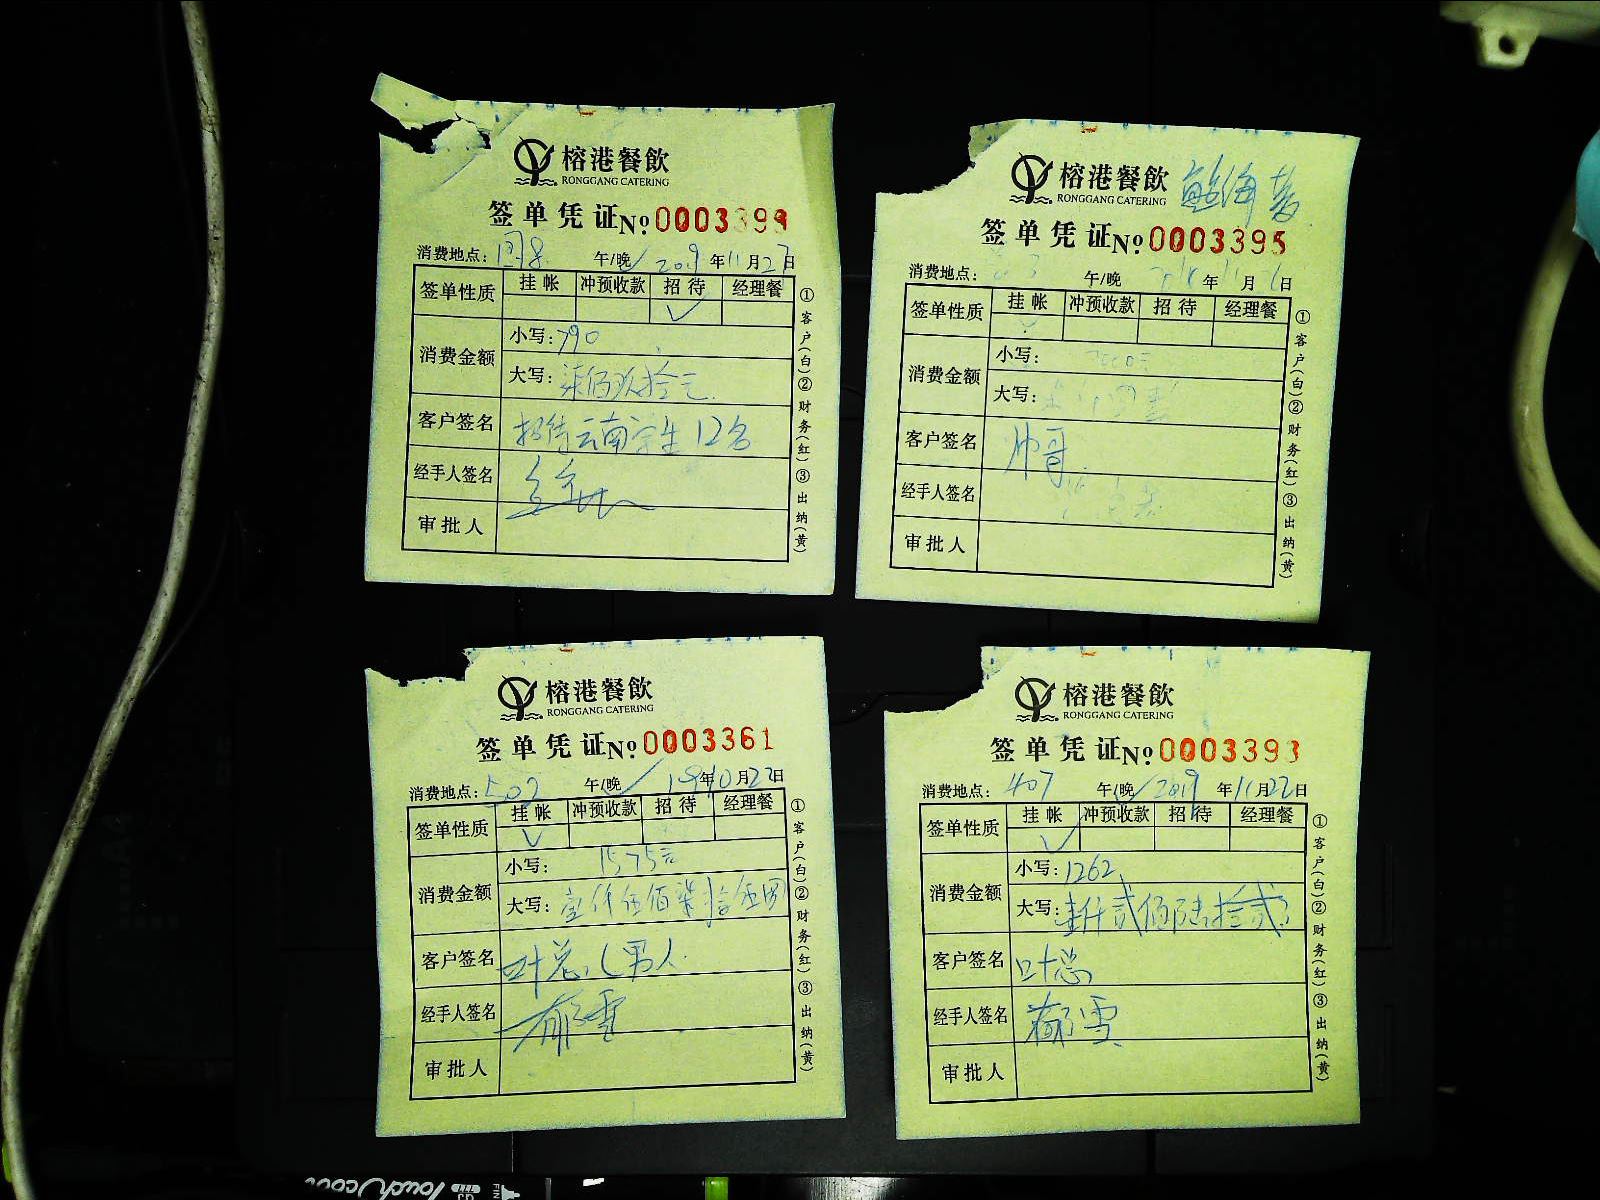 榕港餐飲
RONGGANG CATERING
签单凭证 № 0003399
消费地点: 午/晚 ✓ 2019年11月27日
签单性质 挂帐 冲预收款 招待 经理餐
✓
消费金额 小写: 790
大写: 柒佰玖拾元
客户签名 招待云南学生12名
经手人签名
审批人
①客户(白)②财务(红)③出纳(黄)
榕港餐飲
RONGGANG CATERING
签单凭证 № 0003395
消费地点: 午/晚 年11月 日
签单性质 挂帐 冲预收款 招待 经理餐
消费金额 小写:
大写:
客户签名 帅哥
经手人签名
审批人
①客户(白)②财务(红)③出纳(黄)
榕港餐飲
RONGGANG CATERING
签单凭证 № 0003361
消费地点: 502 午/晚 ✓ 19年10月22日
签单性质 挂帐 冲预收款 招待 经理餐
✓
消费金额 小写: 1575元
大写: 壹仟伍佰柒拾伍圆
客户签名 叶总(男人
经手人签名 郁雪
审批人
①客户(白)②财务(红)③出纳(黄)
榕港餐飲
RONGGANG CATERING
签单凭证 № 0003393
消费地点: 407 午/晚 ✓ 2019年11月22日
签单性质 挂帐 冲预收款 招待 经理餐
✓
消费金额 小写: 1262
大写: 壹仟贰佰陆拾贰
客户签名 叶总
经手人签名 郁雪
审批人
①客户(白)②财务(红)③出纳(黄)
Touch cool